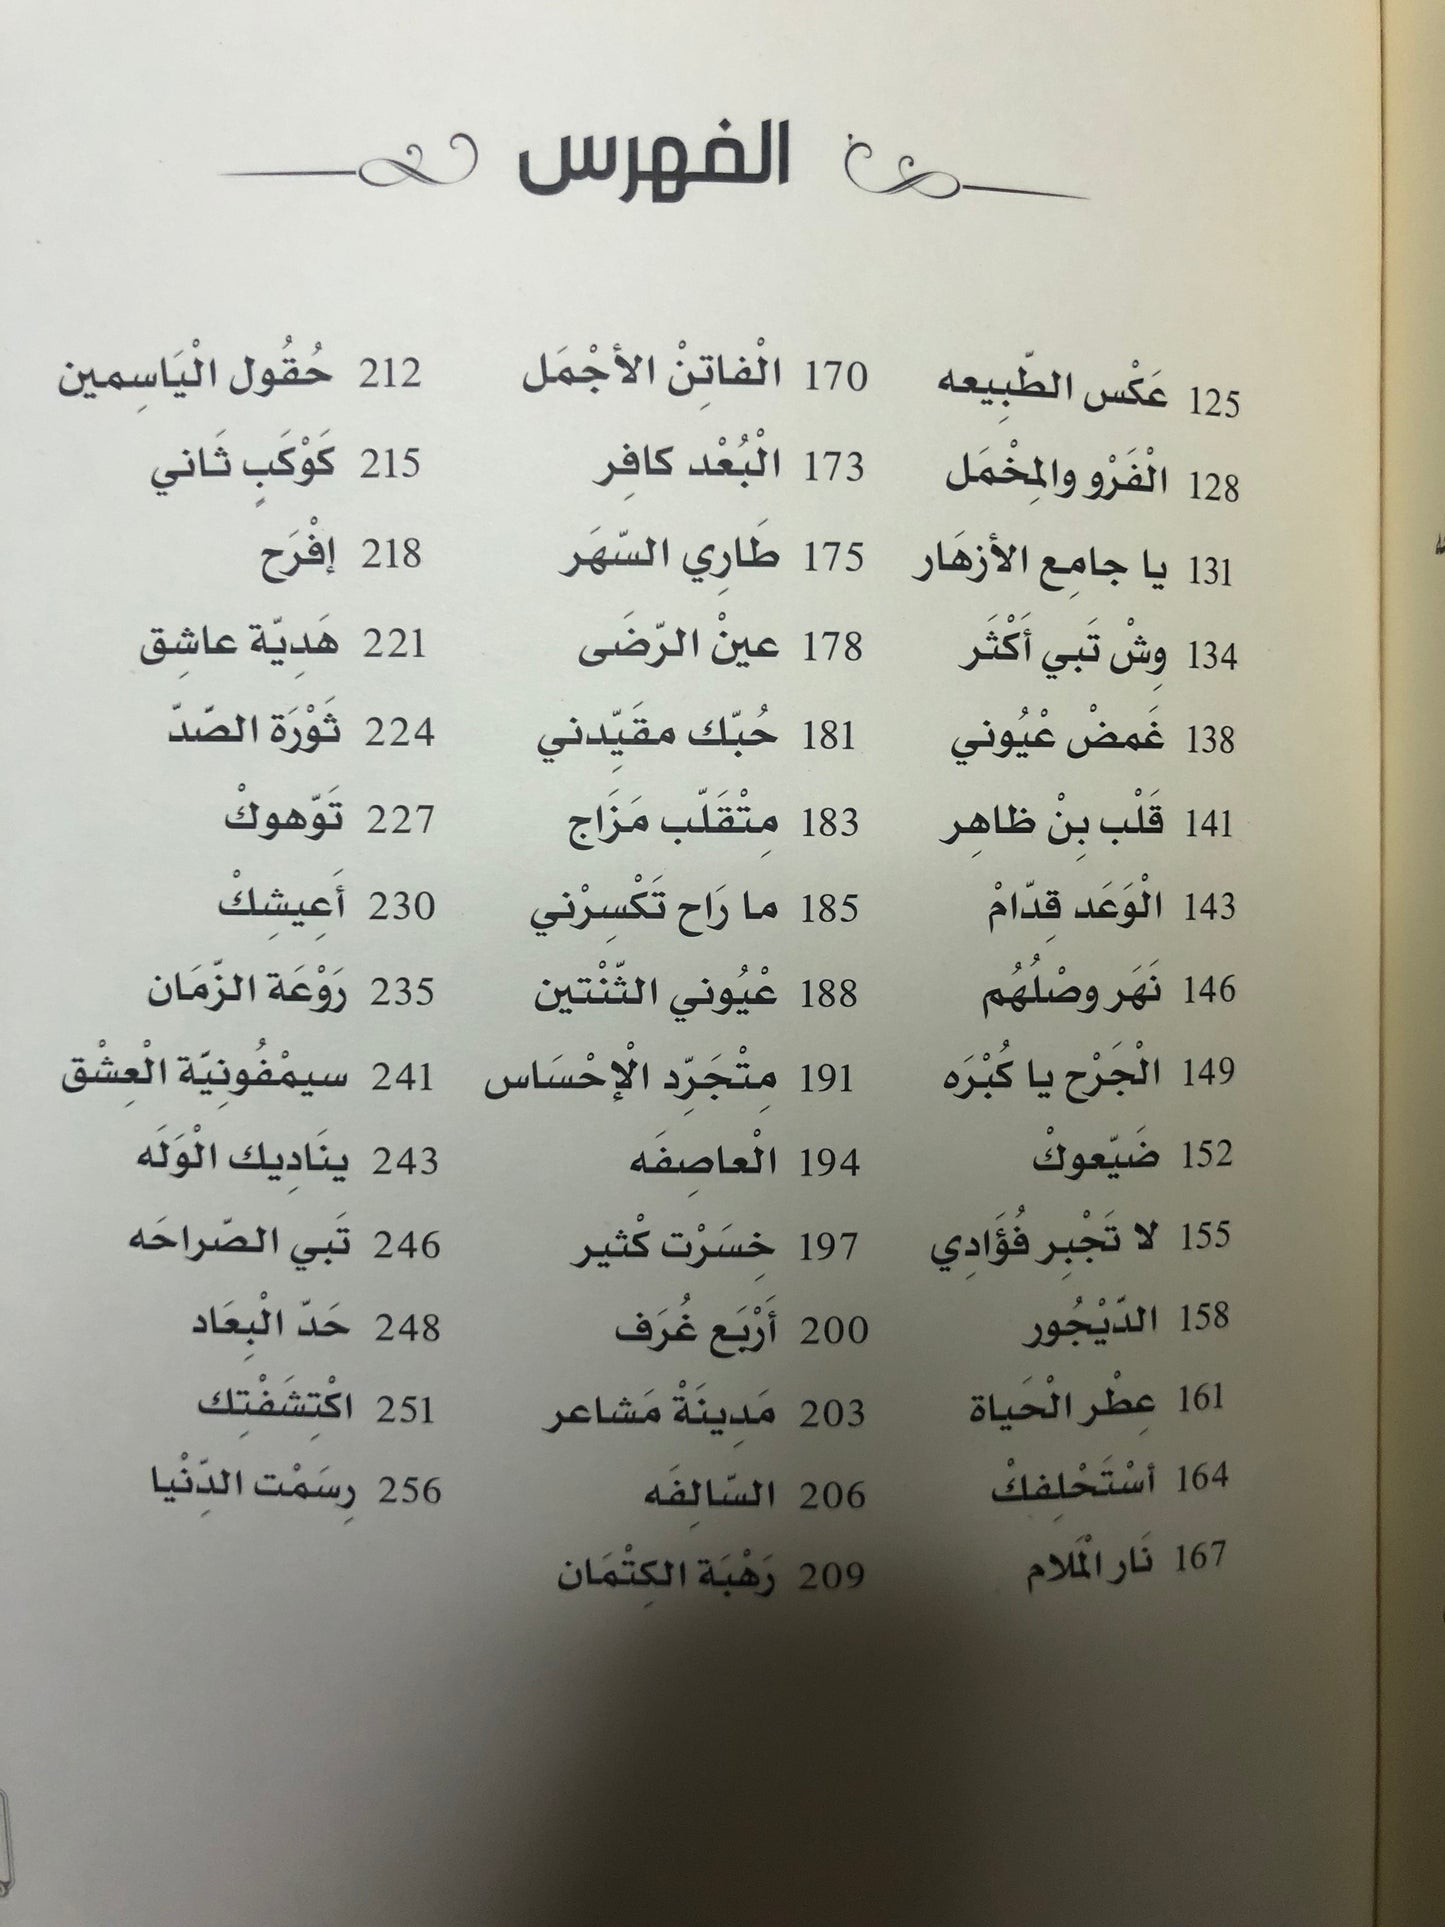 الفهرس
125 عَكْس الطّبِيعه
128 الْفَرْو والمِخْمَل
131 يا جامِع الأزهَار
134 وِشْ تَبي أَكْثَر
138 غَمضْ عْيُوني
141 قَلْب بِنْ ظاهِر
143 الْوَعَد قِدّامْ
146 نَهَر وصْلُهُم
149 الْجَرْح يا كُبْرَه
152 ضَيّعوكْ
155 لا تَجْبِر فُؤَادِي
158 الدّيْجُور
161 عِطْر الْحَياة
164 أسْتَحْلِفكْ
167 نَار الْمَلام
170 الْفاتِنْ الأجْمَل
173 الْبُعْد كافِر
175 طَارِي السّهَر
178 عينْ الرّضَى
181 حُبّك مقَيِّدني
183 مِتْقَلّب مَزَاج
185 ما رَاح تَكْسِرْني
188 عْيُوني الثّنْتين
191 مِتْجَرِّد الْإحْسَاس
194 الْعاصِفَه
197 خِسَرْت كْثير
200 أَرْبَع غُرَف
203 مَدِينَةْ مَشاعر
206 السّالِفَه
209 رَهْبَة الكِتْمَان
212 حُقُول الْيَاسِمين
215 كَوْكَبٍ ثَاني
218 إفْرَح
221 هَدِيّة عاشِق
224 ثَوْرَة الصّدّ
227 تَوّهوكْ
230 أَعِيشِكْ
235 رَوْعَة الزّمَان
241 سيمْفُونِيّة الْعِشْق
243 ينَادِيك الْوَلَه
246 تَبي الصّراحَه
248 حَدّ الْبِعَاد
251 اكْتِشَفْتِك
256 رِسَمْت الدِّنْيا